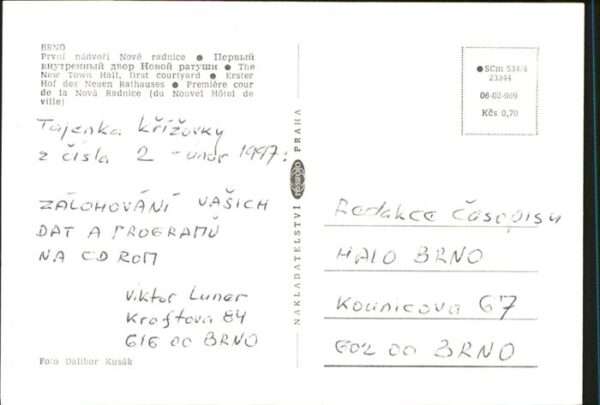 BRNO
První nádvoří Nové radnice ● Первый
внутренный двор Новой ратуши ● The
New Town Hall, first courtyard ● Erster
Hof des Neuen Rathauses ● Première cour
de la Nová Radnice (du Nouvel Hôtel de
ville)
Tajenka křížovky
z čísla 2 - únor 1997:
ZÁLOHOVÁNÍ VAŠICH
DAT A PROGRAMŮ
NA CD ROM
Viktor Luner
Kroftova 84
616 00 BRNO
Foto Dalibor Kusák
NAKLADATELSTVÍ PRESSFOTO PRAHA
●SCm 534/4
23344
06-02-009
Kčs 0,70
Redakce časopisu
HALO BRNO
Kounicova 67
602 00 BRNO